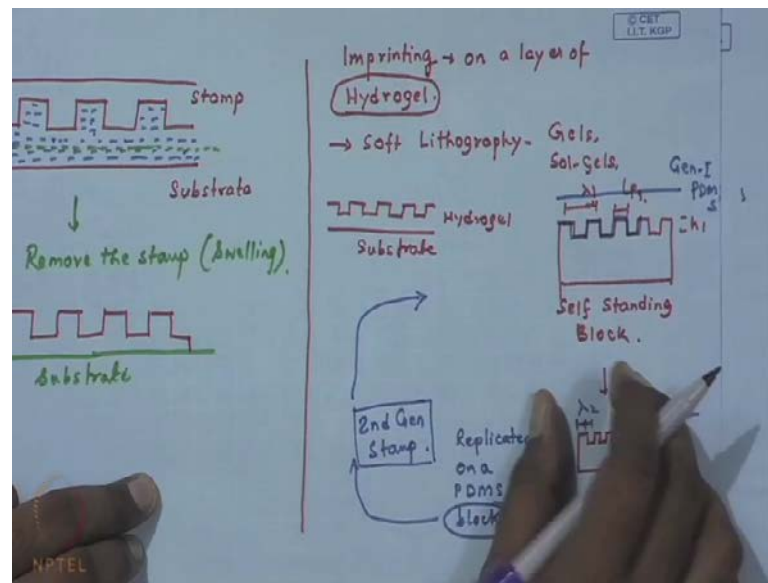 © CET
I.I.T. KGP
Stamp
Substrate
Remove the stamp (Swelling).
Substrate
Imprinting → on a layer of
Hydrogel.
→ Soft Lithography - Gels,
Sol-Gels,
Hydrogel
Substrate
Gen-I
PDM
S
λ1
LP1
h1
Self Standing
Block.
λ2
2nd Gen
Stamp.
Replicated
on a
PDMS
block
NPTEL